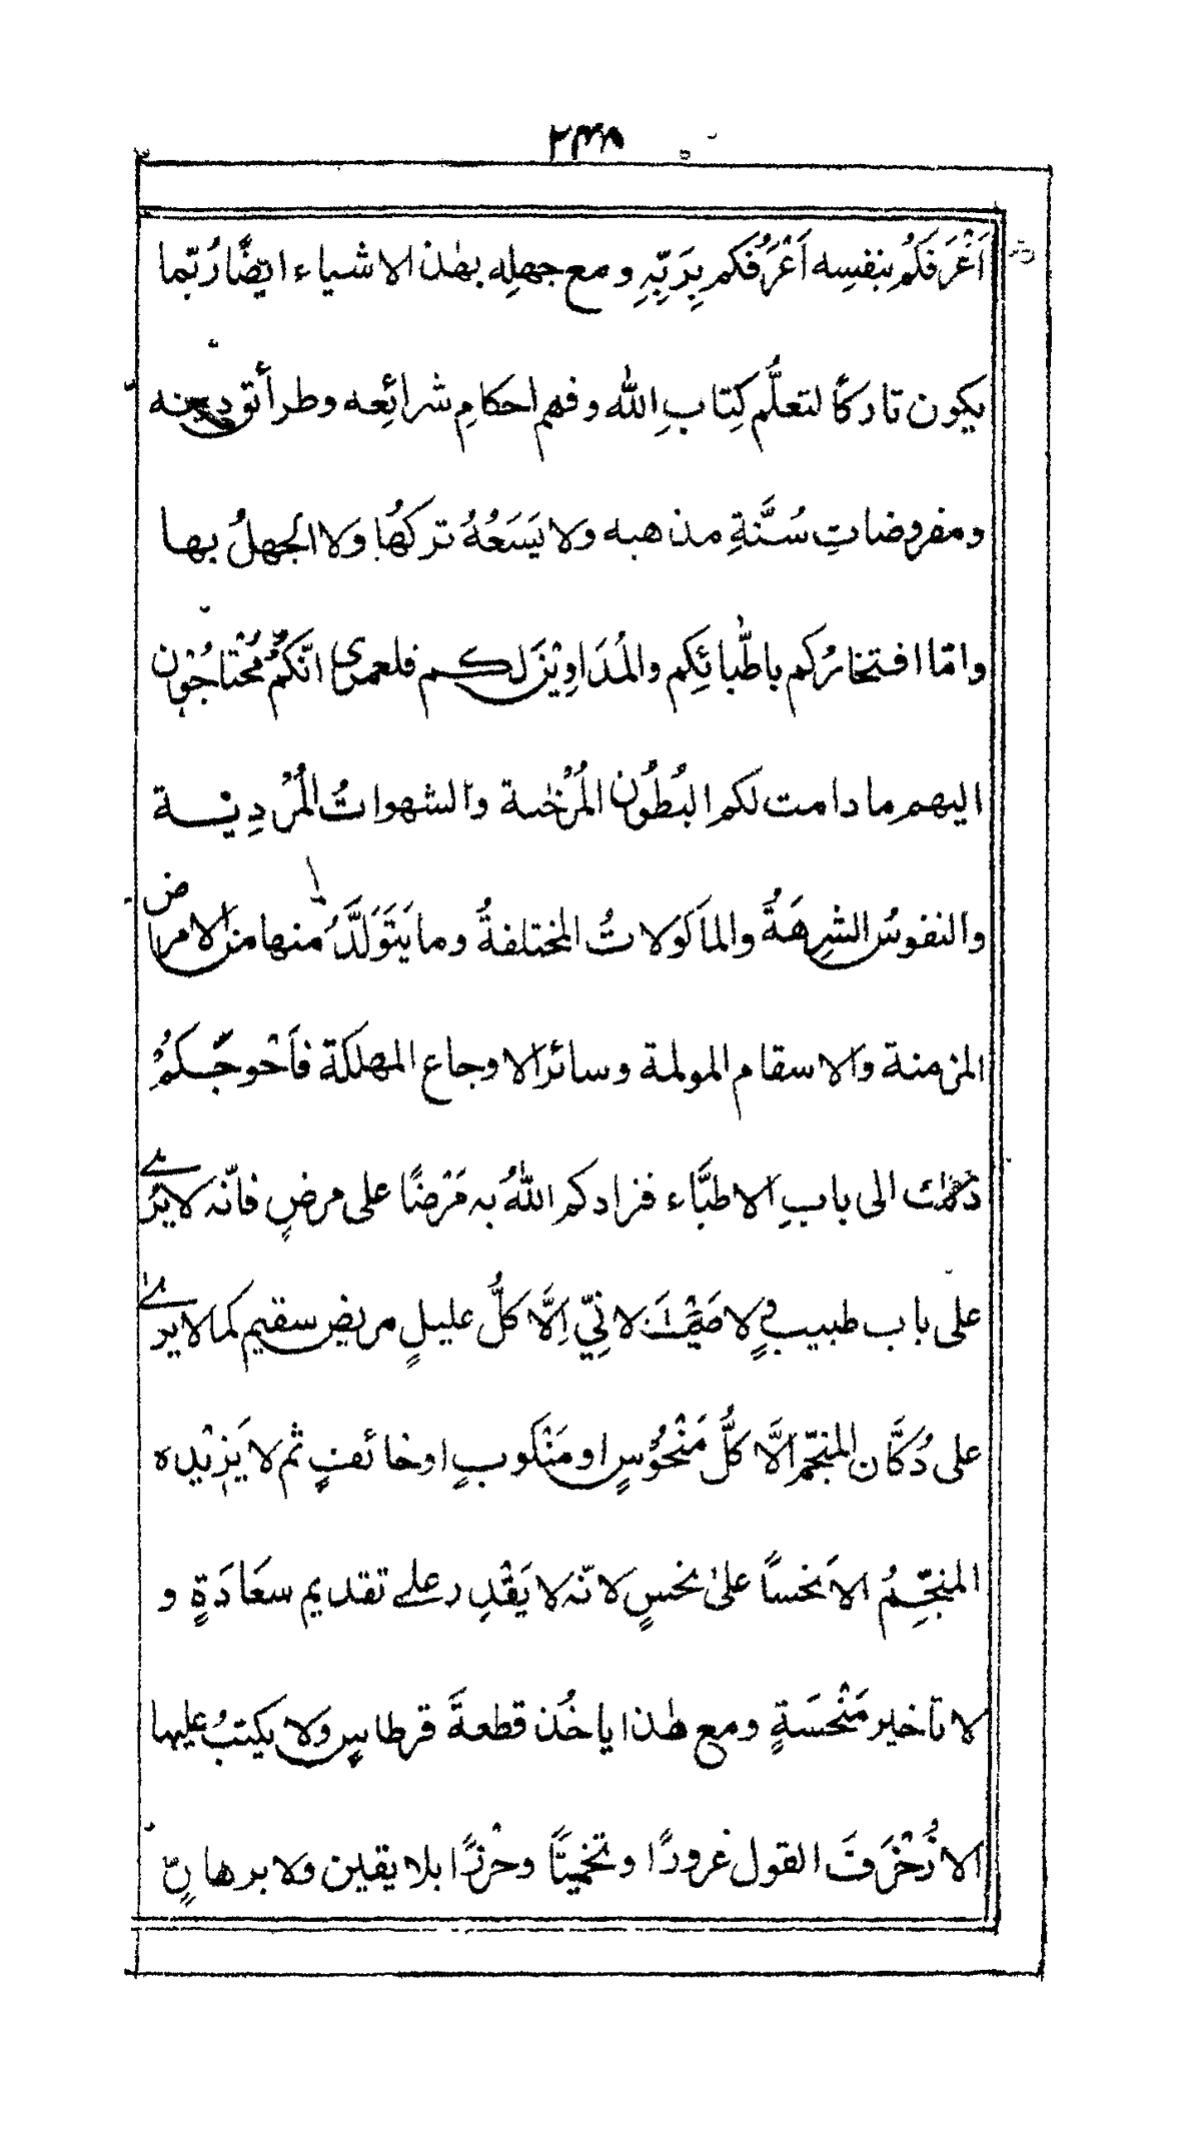 ۲۴۸
اَعْرَفَكُم بنفسِه اَعْرَفُكم بِرَبِّهٖ ومع جهلِه بهٰذا الاشياء ايضًا رُبّما
يكون تاركًا لتعلُّم كِتابِ الله وفهم احكامِ شرائِعه وطرائق دينه
ومفروضاتِ سُنَّةِ مذهبه ولا يَسَعُهُ تركهُا ولا الجهلُ بها
وامّا افتخارُكم باطّبائِكم والمُدَاوِيْنَ لكم فلعمرى انّكمْ مُحْتاجُون
اليهم ما دامت لكم البُطُون المُرْخية والشهواتُ المُرْدِيْة
والنفوسُ الشرِهَةُ والماَكولاتُ المختلفةُ وما يَتَوَلَّدُ منها من الامراض
المزمنة والاسقام المولمة وسائر الاوجاع المهلكة فاَحْوجَكمْ
ذٰلك الى بابِ الاطبَّاء فزادكم اللهُ به مَرَضًا على مرضٍ فانّه لا يرٰى
على باب طبيبٍ ولا اِلَّا كلُّ عليلٍ مريض سقيم كما لا يرٰى
على دُكَّان المنجّم الاَّ كلُّ مَنْحُوْسٍ او مَنْكوبٍ او خائفٍ ثم لا يَزِيْده
المنجِّمُ الا نحساً علىٰ نحسٍ لانّه لا يَقْدِر على تقديم سعَادَةٍ و
لا تاخير مَنْحَسَةٍ ومع هٰذا ياخُذ قطعةَ قرطاسٍ ولا يكتبُ عليها
الا زُخْرَفَ القول غرورًا وتخمينًا وحْزرًا بلا يقين ولا برهانٍ